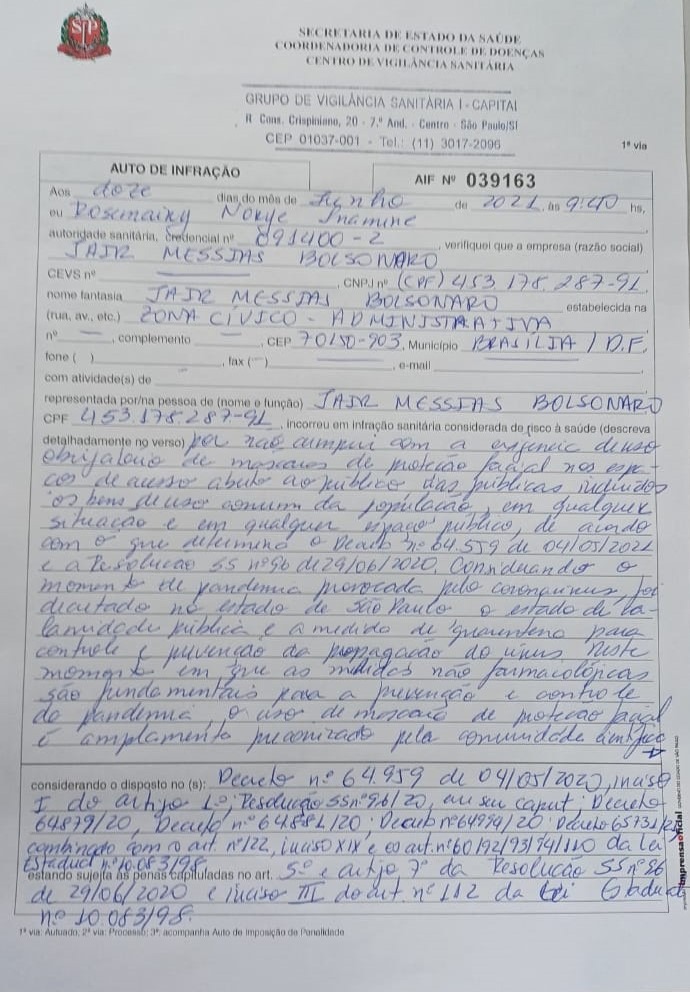 SP
SECRETARIA DE ESTADO DA SAÚDE
COORDENADORIA DE CONTROLE DE DOENÇAS
CENTRO DE VIGILÂNCIA SANITÁRIA
GRUPO DE VIGILÂNCIA SANITÁRIA I - CAPITAL
R Cons. Crispiniano, 20 - 7.º And. - Centro - São Paulo/SP
CEP 01037-001 - Tel.: (11) 3017-2096
1ª via
AUTO DE INFRAÇÃO
AIF Nº 039163
Aos doze dias do mês de Junho de 2021, às 9:40 hs,
eu Rosemairy Inamine
autoridade sanitária, credencial nº 091400-2, verifiquei que a empresa (razão social)
JAIR MESSIAS BOLSONARO
CEVS nº , CNPJ nº (CPF) 453.178.287-91,
nome fantasia JAIR MESSIAS BOLSONARO estabelecida na
(rua, av., etc.) ZONA CÍVICO - ADMINISTRATIVA
nº , complemento , CEP 70150-903, Município BRASÍLIA / D.F.
fone ( ) , fax ( ) , e-mail
com atividade(s) de
representada por/na pessoa de (nome e função) JAIR MESSIAS BOLSONARO
CPF 453.178.287-91, incorreu em infração sanitária considerada de risco à saúde (descreva
detalhadamente no verso) por não cumprir com a exigencia de uso
obrigatorio de mascaras de proteção facial nos espa-
ços de acesso aberto ao público, das públicas incluidos
os bens de uso comum da população, em qualquer
situação e em qualquer espaço público, de acordo
com o que determina o Decreto nº 64.559 de 04/05/2021
e a Resolução SS nº96 de 29/06/2020. Considerando o
momento de pandemia provocada pelo coronavirus, foi
decretado no estado de São Paulo o estado de ca-
lamidade pública e a medida de quarentena para
controle e prevenção da propagação do virus. Neste
momento em que as medidas não farmacológicas
são fundamentais para a prevenção e controle
da pandemia, o uso de mascara de proteção facial
é amplamente preconizado pela comunidade científica
considerando o disposto no (s): Decreto nº 64.959 de 04/05/2020, inciso
I do artigo 1º; Resolução SS nº96/20, em seu caput; Decreto
64879/20, Decreto nº 64.881/20; Decreto nº64994/20; Decreto 65731/21
combinado com o art. nº122, inciso XIX e co art. nº60/92/93/94/110 da lei
Estadual nº 10.083/98,
estando sujeita às penas capituladas no art. 5º e artigo 7º da Resolução SS nº96
de 29/06/2020 e inciso III do art. nº 112 da Lei Estadual
nº 10 083/98.
1ª via: Autuado; 2ª via: Processo; 3ª: acompanha Auto de Imposição de Penalidade
imprensaoficial
GOVERNO DO ESTADO DE SÃO PAULO